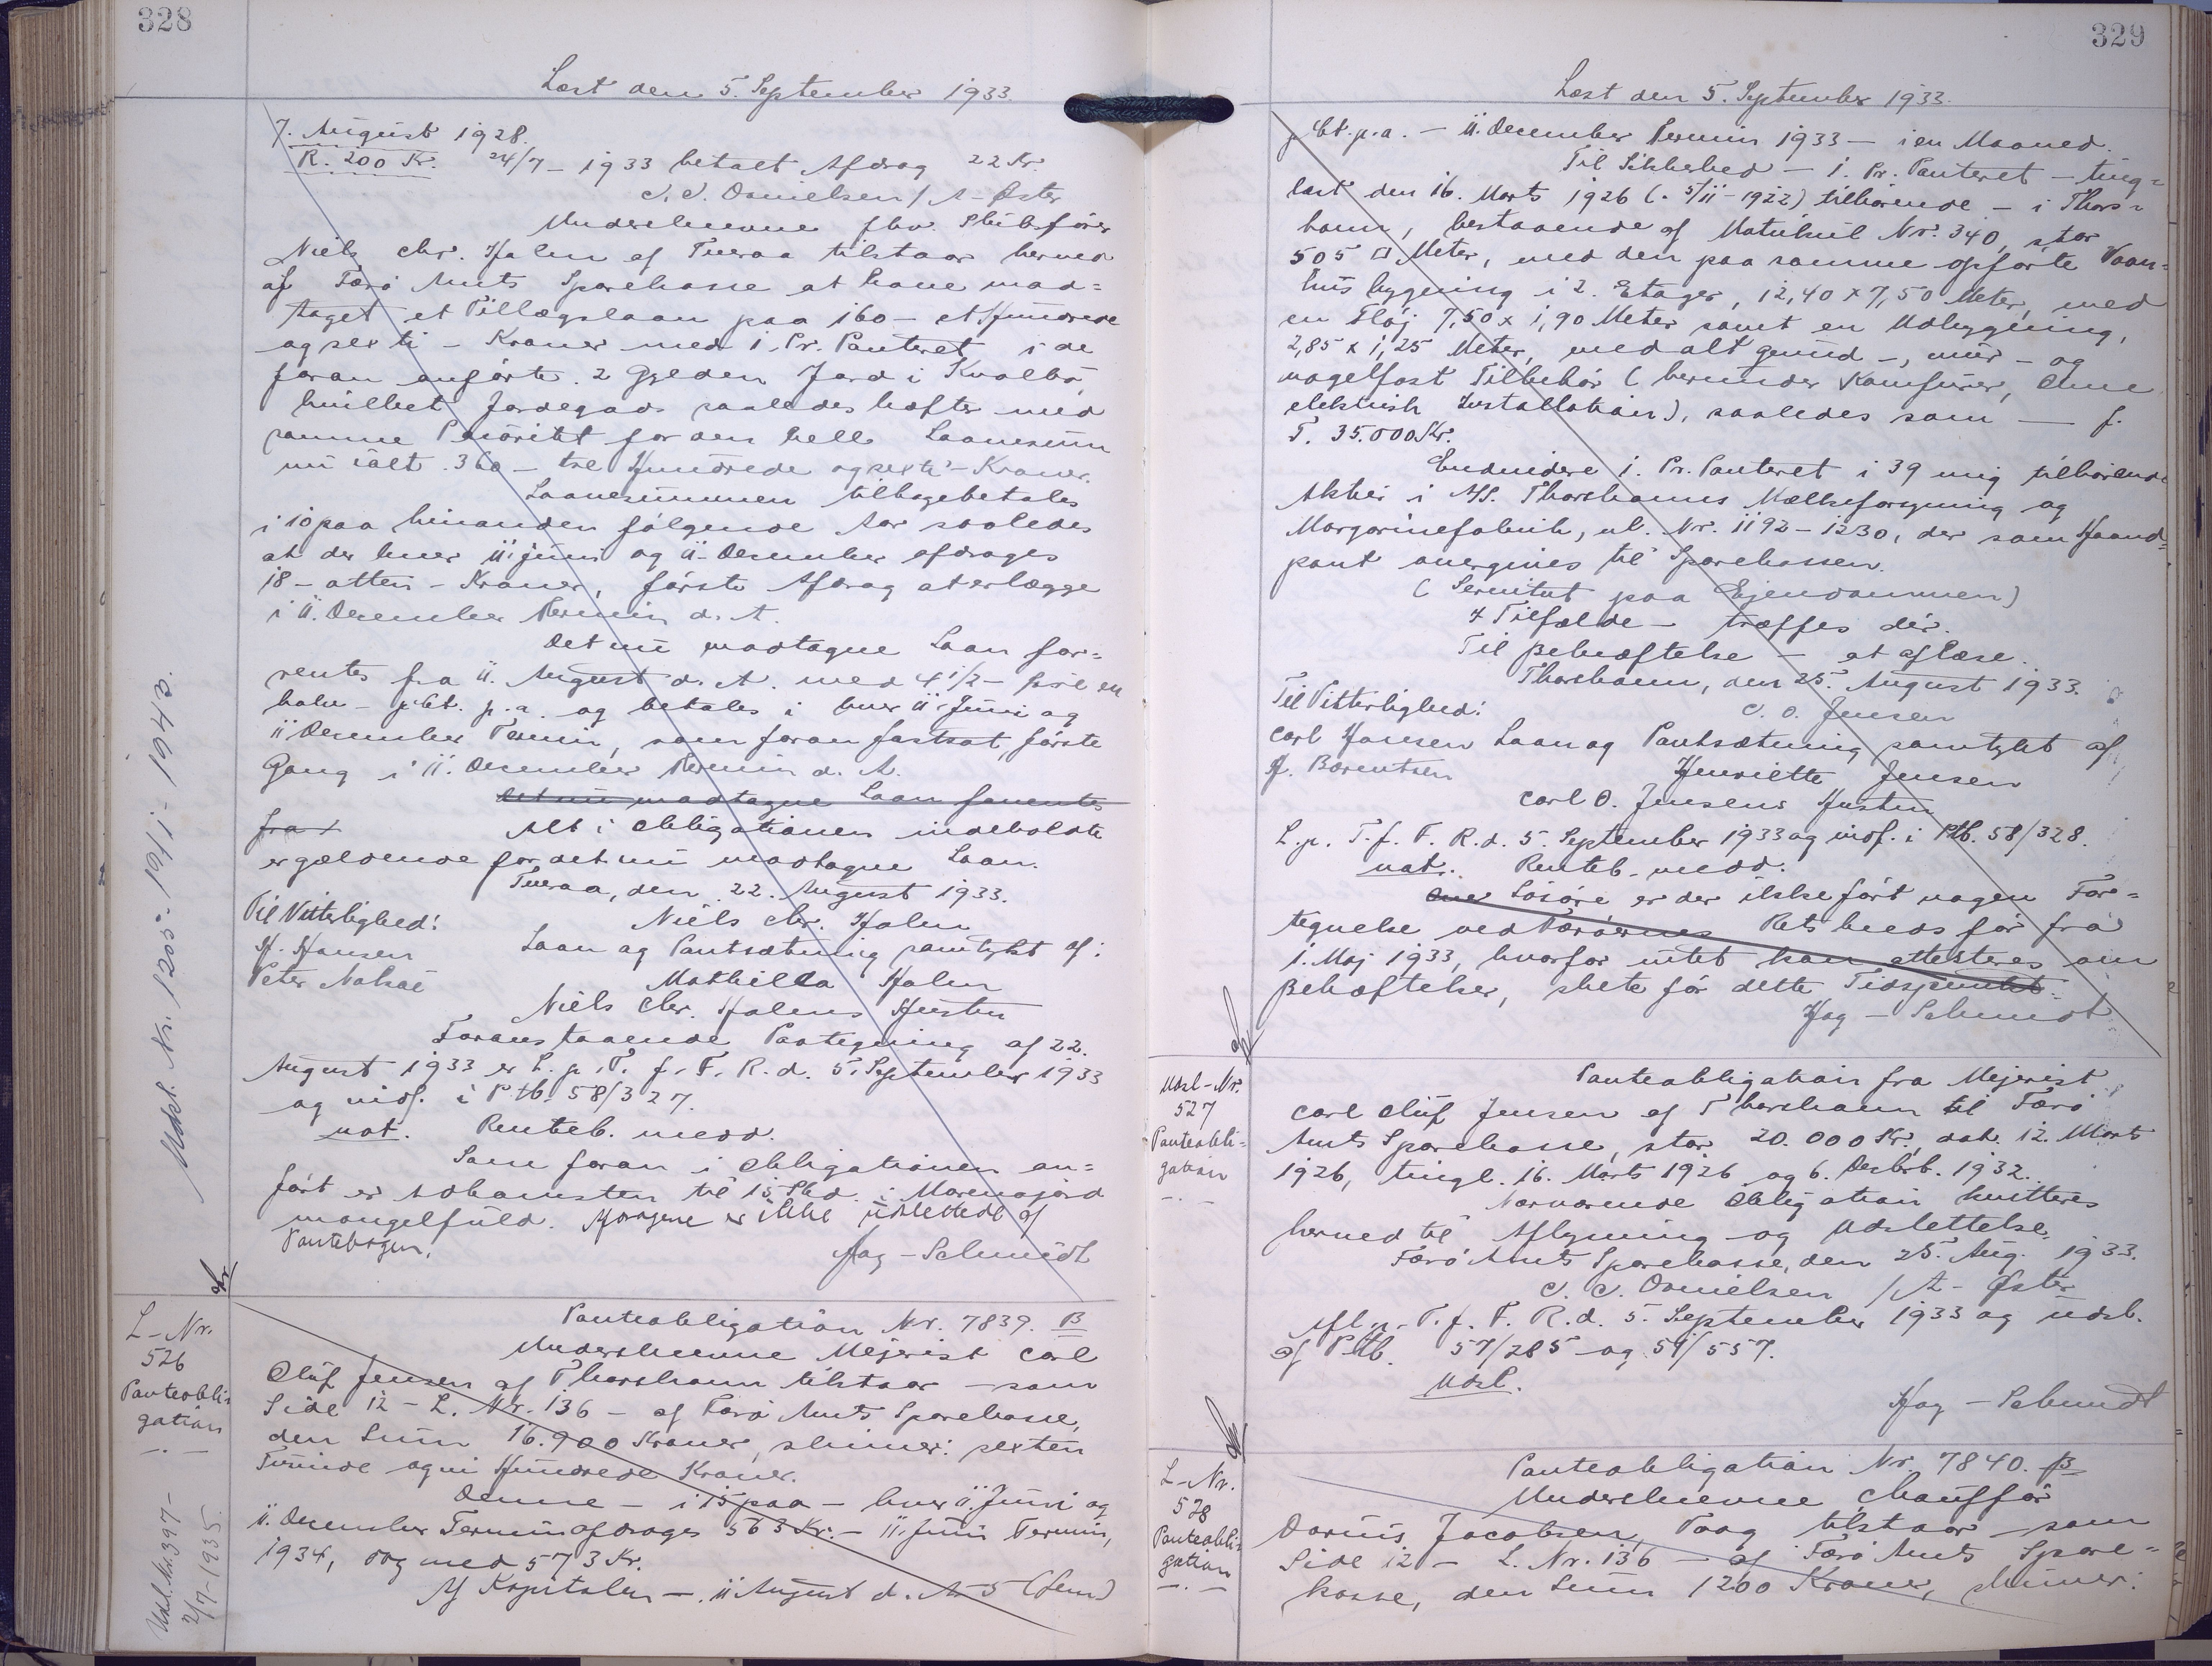 328
Læst den 5. September 1933.
7. August 1928.
R. 200 Kr. 24/7 - 1933 betalt Afdrag 22 Kr.
J. J. Danielsen / A- Øster
Underskrevne fhv. Skibsfører
Niels Chr. Holm af Tveraa tilstaar herved
af Færø Amts Sparekasse at have mod=
taget et Tillægslaan paa 160 - et Hundrede
og sexti - Kroner med 1. Pr. Panteret i de
foran anførte 2 Gylden Jord i Kvalbø,
hvilket Jordegods saaledes hæfter med
samme Prioritet for den hele Laanesum
nu ialt 360 - tre Hundrede og sexti - Kroner.
Laanesummen tilbagebetales
i 10 paa hinanden følgende Aar saaledes
at der hver 11. Juni og 11. December afdrages
18 - atten - Kroner, første Afdrag at erlægge
i 11. December Termin d. A.
Det nu modtagne Laan for=
rentes fra 11. August d. A. med 4 1/2 - fire en
halv - pCt. p. a. og betales i hver 11. Juni og
11 December Termin, som foran fastsat, første
Gang i 11. December Termin d. A.
Det nu modtagne Laan forrentes
fra 1
Alt i Obligationen indeholdte
er gældende for det nu modtagne Laan.
Tveraa, den 22. August 1933.
Til Vitterlighed: Niels Chr. Holm
H. Hansen Laan og Pantsætning samtykt af:
Peter Nolsøe Mathilda Holm
Niels Chr. Holms Hustru
Foranstaaende Paategning af 22.
August 1933 er L. p. T. f. F. R. d. 5. September 1933
og indf. i Ptb. 58/327.
not. Renteb. medd.
Som foran i Obligationen an=
ført er Adkomsten til 15 Skd. i Morenajord
mangelfuld. Horogene er ikke udslettede af
Pantebogen.
Hag - Schmidt
Udsl. Nr. 1205 - 19/1 - 1943.
L - Nr.
526
Panteobli=
gation
Udsl. Nr. 397 -
2/7 - 1935.
Panteobligation Nr. 7839. B
Underskrevne Mejerist Carl
Oluf Jensen af Thorshavn tilstaar - som
Side 12 - L. Nr. 136 - af Færø Amts Sparekasse,
den Sum 16.900 Kroner, skriver: sexten
Tusinde og ni Hundrede Kroner.
Denne - i 15 paa - hver 11. Juni og
11. December Termin afdrages 563 Kr. - 11. Juni Termin,
1934, dog med 573 Kr.
Af Kapitalen - 11 August d. A. 5 (fem)
329
Læst den 5. September 1933.
p Ct. p. a. - 11. December Termin 1933 - i en Maaned.
Til Sikkerhed - 1. Pr. Panteret - ting=
læst den 16. Marts 1926 (- 5/11 - 1922) tilhørende - i Thors=
havn, bestaaende af Matrikul Nr. 340, stor
505 □ Meter, med den paa samme opførte Vaan=
husbygning i 2. Etager, 12,40 x 7,50 Meter, med
en Fløj 7,50 x 1,90 Meter samt en Udbygning,
2,85 x 1,25 Meter, med alt grund -, mur - og
nagelfast Tilbehør (herunder Komfurer, Ovne
elektrisk Installation), saaledes som - f.
T. 35.000 Kr.
Endvidere 1. Pr. Panteret i 39 mig tilhørende
Aktier i A/S. Thorshavns Mælkeforsyning og
Margarinefabrik, nl. Nr. 1192 - 1230, der som Haand=
pant overgives til Sparekassen.
(Servitut paa Ejendommen)
I Tilfælde - træffes dér.
Til Bekræftelse - at aflæse.
Thorshavn, den 25. August 1933.
Til Vitterlighed: C. O. Jensen
Carl Hansen Laan og Pantsætning samtykt af
H. Barentsen Henriette Jensen
Carl O. Jensens Hustru
L. p. T. f. F. R. d. 5. September 1933 og indf. i Ptb. 58/328.
not. Renteb. medd.
Over Løsøre er der ikke ført nogen For=
tegnelse ved Færøernes Ret heds før fra
1. Maj 1933, hvorfor intet kan attesteres om
Behæftelser, skete før dette Tidspunkt.
Hag - Schmidt
Udsl - Nr.
527
Panteobli=
gation
Panteobligation fra Mejerist
Carl Oluf Jensen af Thorshavn til Færø
Amts Sparekasse, stor 20.000 Kr., dat. 12. Marts
1926, tingl. 16. Marts 1926 og 6. Decbr. 1932.
Nærværende Obligation kvitteres
herved til Aflysning og Udslettelse.
Færø Amts Sparekasse, den 25. Aug. 1933.
J. J. Danielsen / A- Øster
Afl. p. T. f. F. R. d. 5. September 1933 og udsl.
af Ptb. 57/285 og 51/557.
Udsl.
Hag - Schmidt
L - Nr.
528
Panteobli=
gation
Panteobligation Nr. 7840. B
Underskrevne Chauffør
Dorius Jacobsen, Vaag tilstaar - som
Side 12 - L. Nr. 136 - af Færø Amts Spare=
kasse, den Sum 1200 Kroner, skriver: